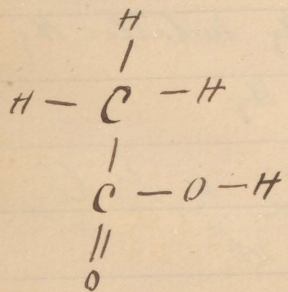 H
H – C – H
|
C – O – H
||
O